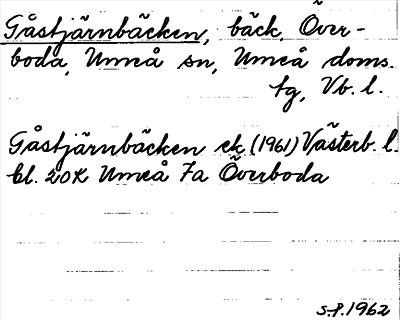 Gåstjärnbäcken, bäck, Över-
boda, Umeå sn, Umeå doms.
tg, Vb. l.
Gåstjärnbäcken ek (1961) Västerb. l.
bl. 20K Umeå 7a Överboda
s.f. 1962